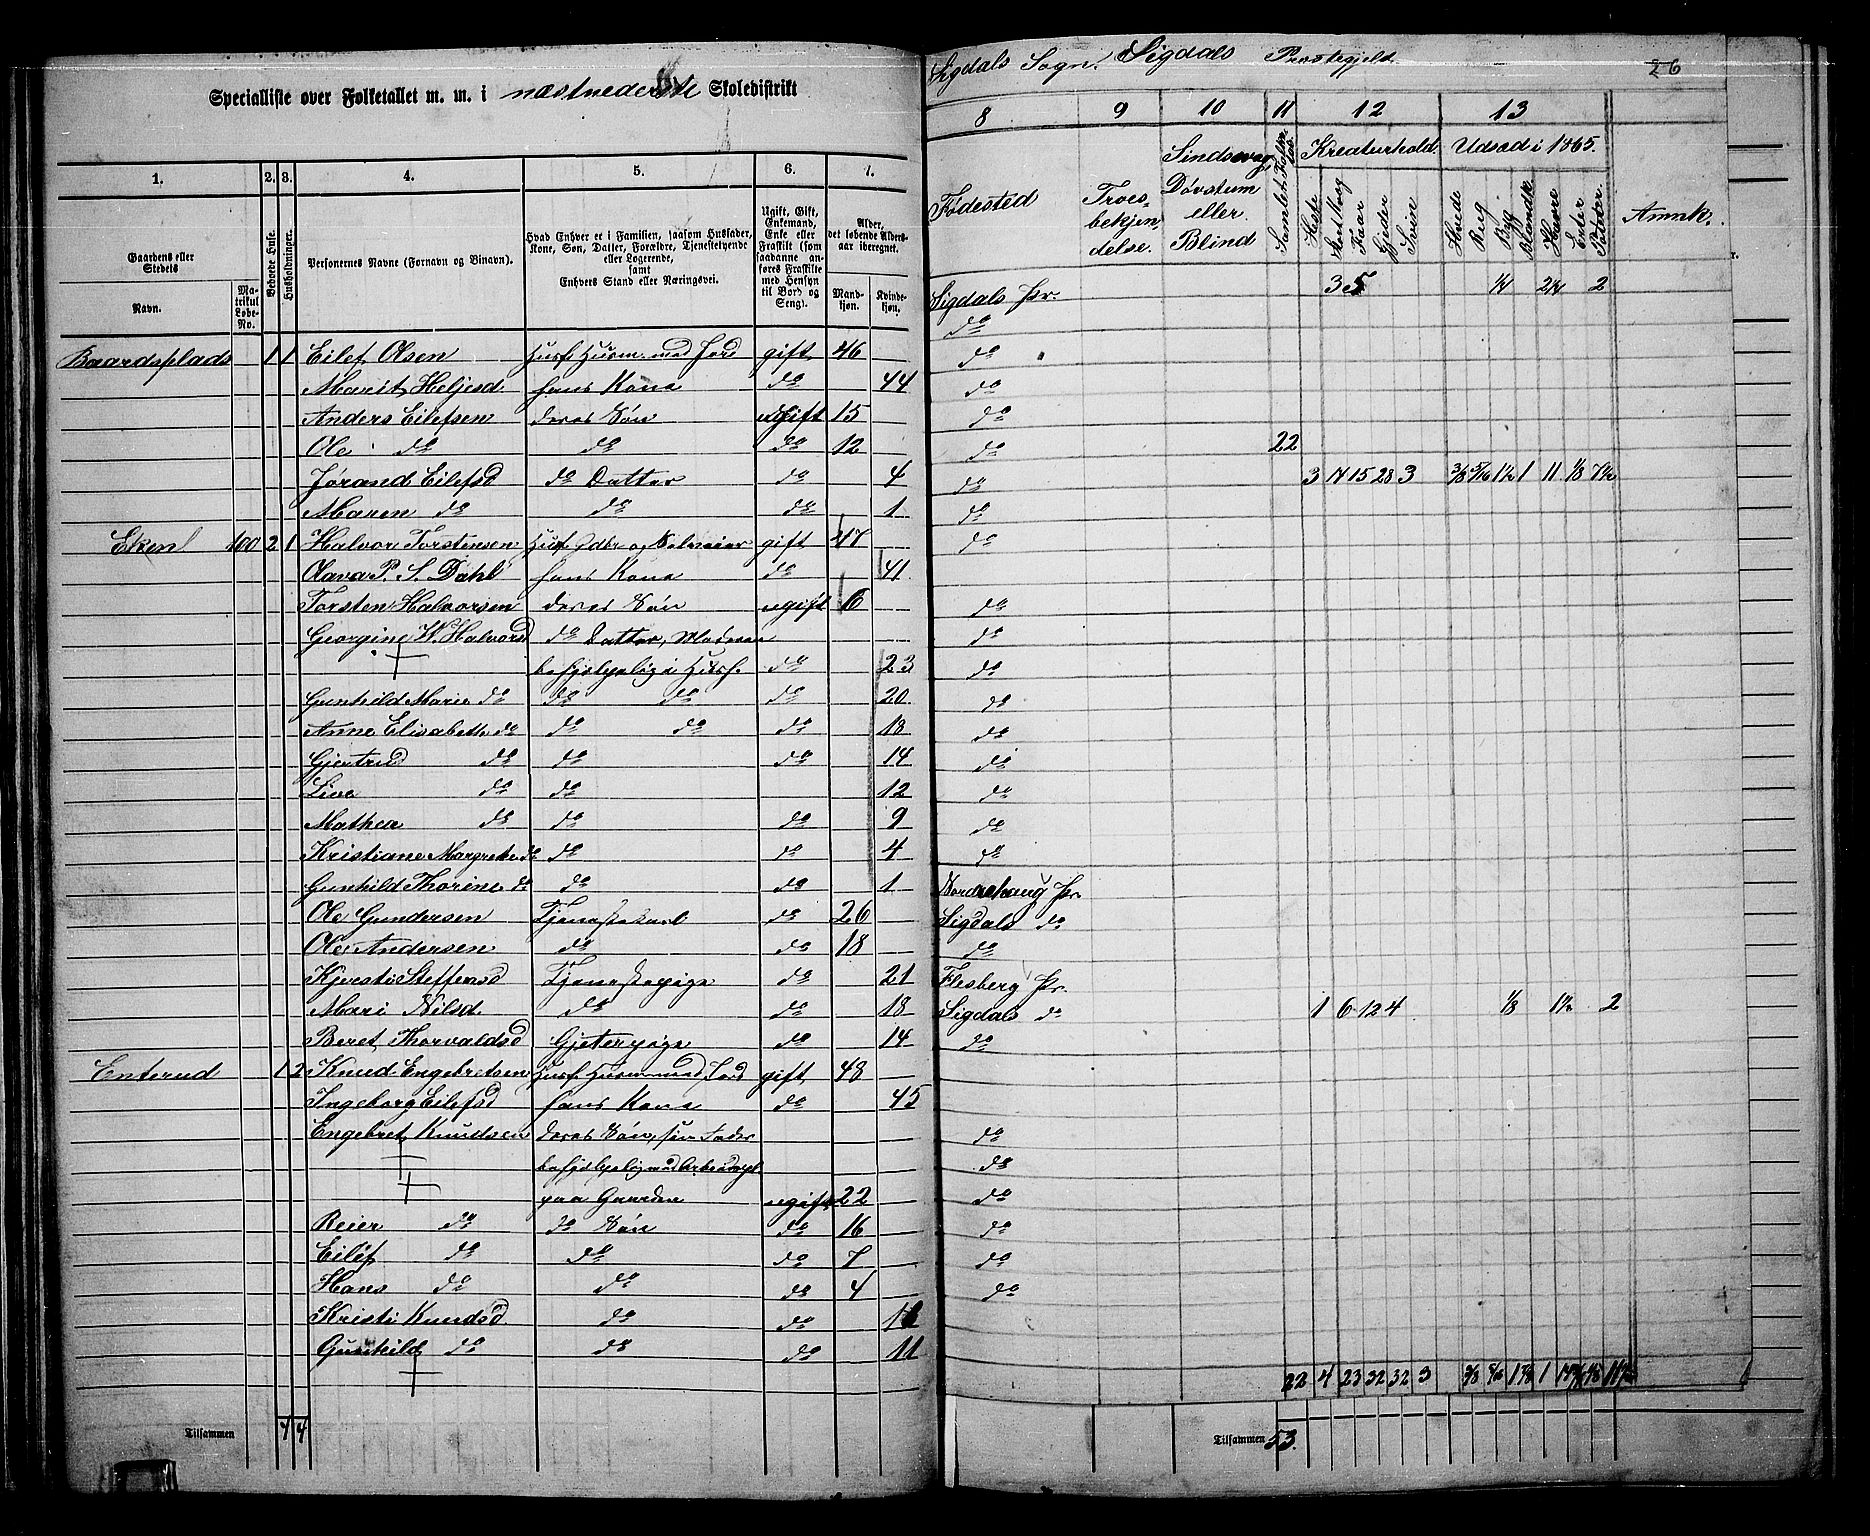 Specialliste over Folketallet m. m. i næstnederste Skoledistrikt
1. 2. 3. 4. 5. 6. 7.
Gaardens eller Stedets
Navn. Matrikul Løbe-No. Beboede Huse. Husholdninger.
Personernes Navne (Fornavn og Binavn).
Hvad Enhver er i Familien, saasom Husfader, Kone, Søn, Datter, Forældre, Tjenestetyende eller Logerende, samt Enhvers Stand eller Næringsvei.
Ugift, Gift, Enkemand, Enke eller Fraskilt (som saadanne anføres Fraskilte med Hensyn til Bord og Seng).
Alder, det løbende Aldersaar iberegnet.
Mandkjøn. Kvindekjøn.
Baardsplads 1 1 Eilef Olsen Husf. Husm. med Jord gift 46
Marit Heljesd. hans Kone do 44
Anders Eilefsen deres Søn ugift 15
Ole do do do 12
Jørand Eilefsd do Datter do 4
Maren do do do 1
Eken 100 2 1 Halvor Torstensen Husf. Gdbr. og Selveier gift 47
Olava P. S. Dahl hans Kone do 41
Torsten Halvorsen deres Søn ugift 16
Georgine W. Halvorsd do Datter,
Husf. do 23
Gunhild Marie do do do do 20
Anne Elisabeth do do do do 18
Gjertrud do do do 14
Live do do 12
Mathea do do do 9
Kristiane Margrethe do do do 4
Gunhild Thorine do do do 1
Ole Gundersen Tjenestekarl do 26
Ole Andersen do do 18
Kjersti Steffensd Tjenestepige do 21
Mari Nilsd do do 18
Beret Thorvaldsd Gjeterpige do 14
Enterud 1 2 Knud Engebretsen Husf. Husm. med Jord gift 48
Ingeborg Eilefsd hans Kone do 45
Engebret Knudsen deres Søn, sin Fader
behjelpelig med Arbeidet
paa Gaarden ugift 22
Reier do do Søn do 16
Eilef do do do 7
Hans do do do 4
Kristi Knudsd do do
Gunhild do do do 11
Tilsammen 4 4
Sigdals Sogn. Sigdals Prestegjeld. 26
8 9 10 11 12 13
Fødested Troesbekjendelse. Sindssvag, Døvstum eller Blind Samlet Folketal Kreaturhold. Udsæd i 1865. Anmk.
Heste Faar Gjeder Sviin Hvede Rug Byg Blandk. Havre Erter Poteter.
Sigdals Pr. 3 5 1/4 2 1/4 2
do
do
do
do
do 22
do 3 14 15 28 3 3/8 5/16 1 1/2 1 11 1/8 7 1/2
do
do
do
do
do
do
do
do
do
do
do
Norderhoug Pr.
Sigdals do
do
Flesberg Pr.
Sigdals do 1 6 12 4 1/8 1 1/2 2
do
do
do
do
do
do
do
22 4 23 32 32 3 3/8 5/16 1 7/8 1
Tilsammen 53.